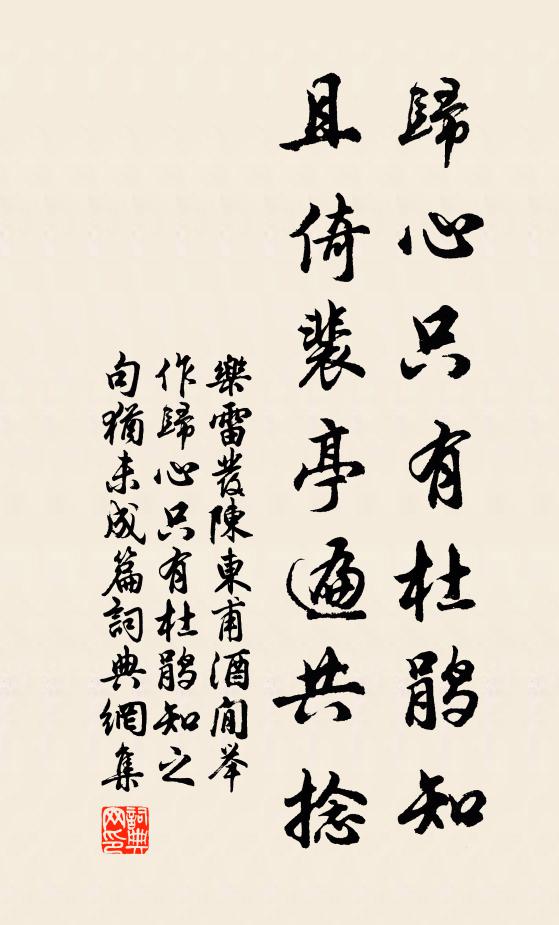 歸心只有杜鵑知
且倚裴亭遍共捻
樂雷發陳東甫酒間舉
作歸心只有杜鵑知之
句猶未成篇詞典網集
詞典網印